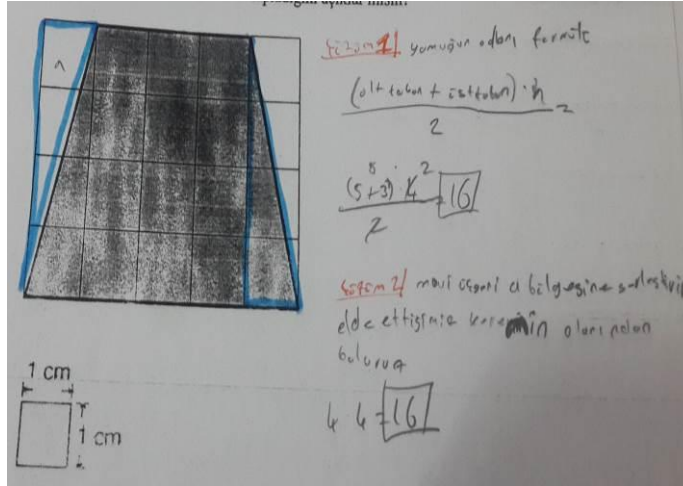 Çözüm 1/ yamuğun alanı formülü
(alt taban + üst taban) . h
2
=
8
(5+3) . 4 2
2
= 16
Çözüm 2/ mavi üçgeni a bölgesine yerleştirip
elde ettiğimiz karenin alanından
buluruz
4 4 = 16
a
1 cm
1 cm